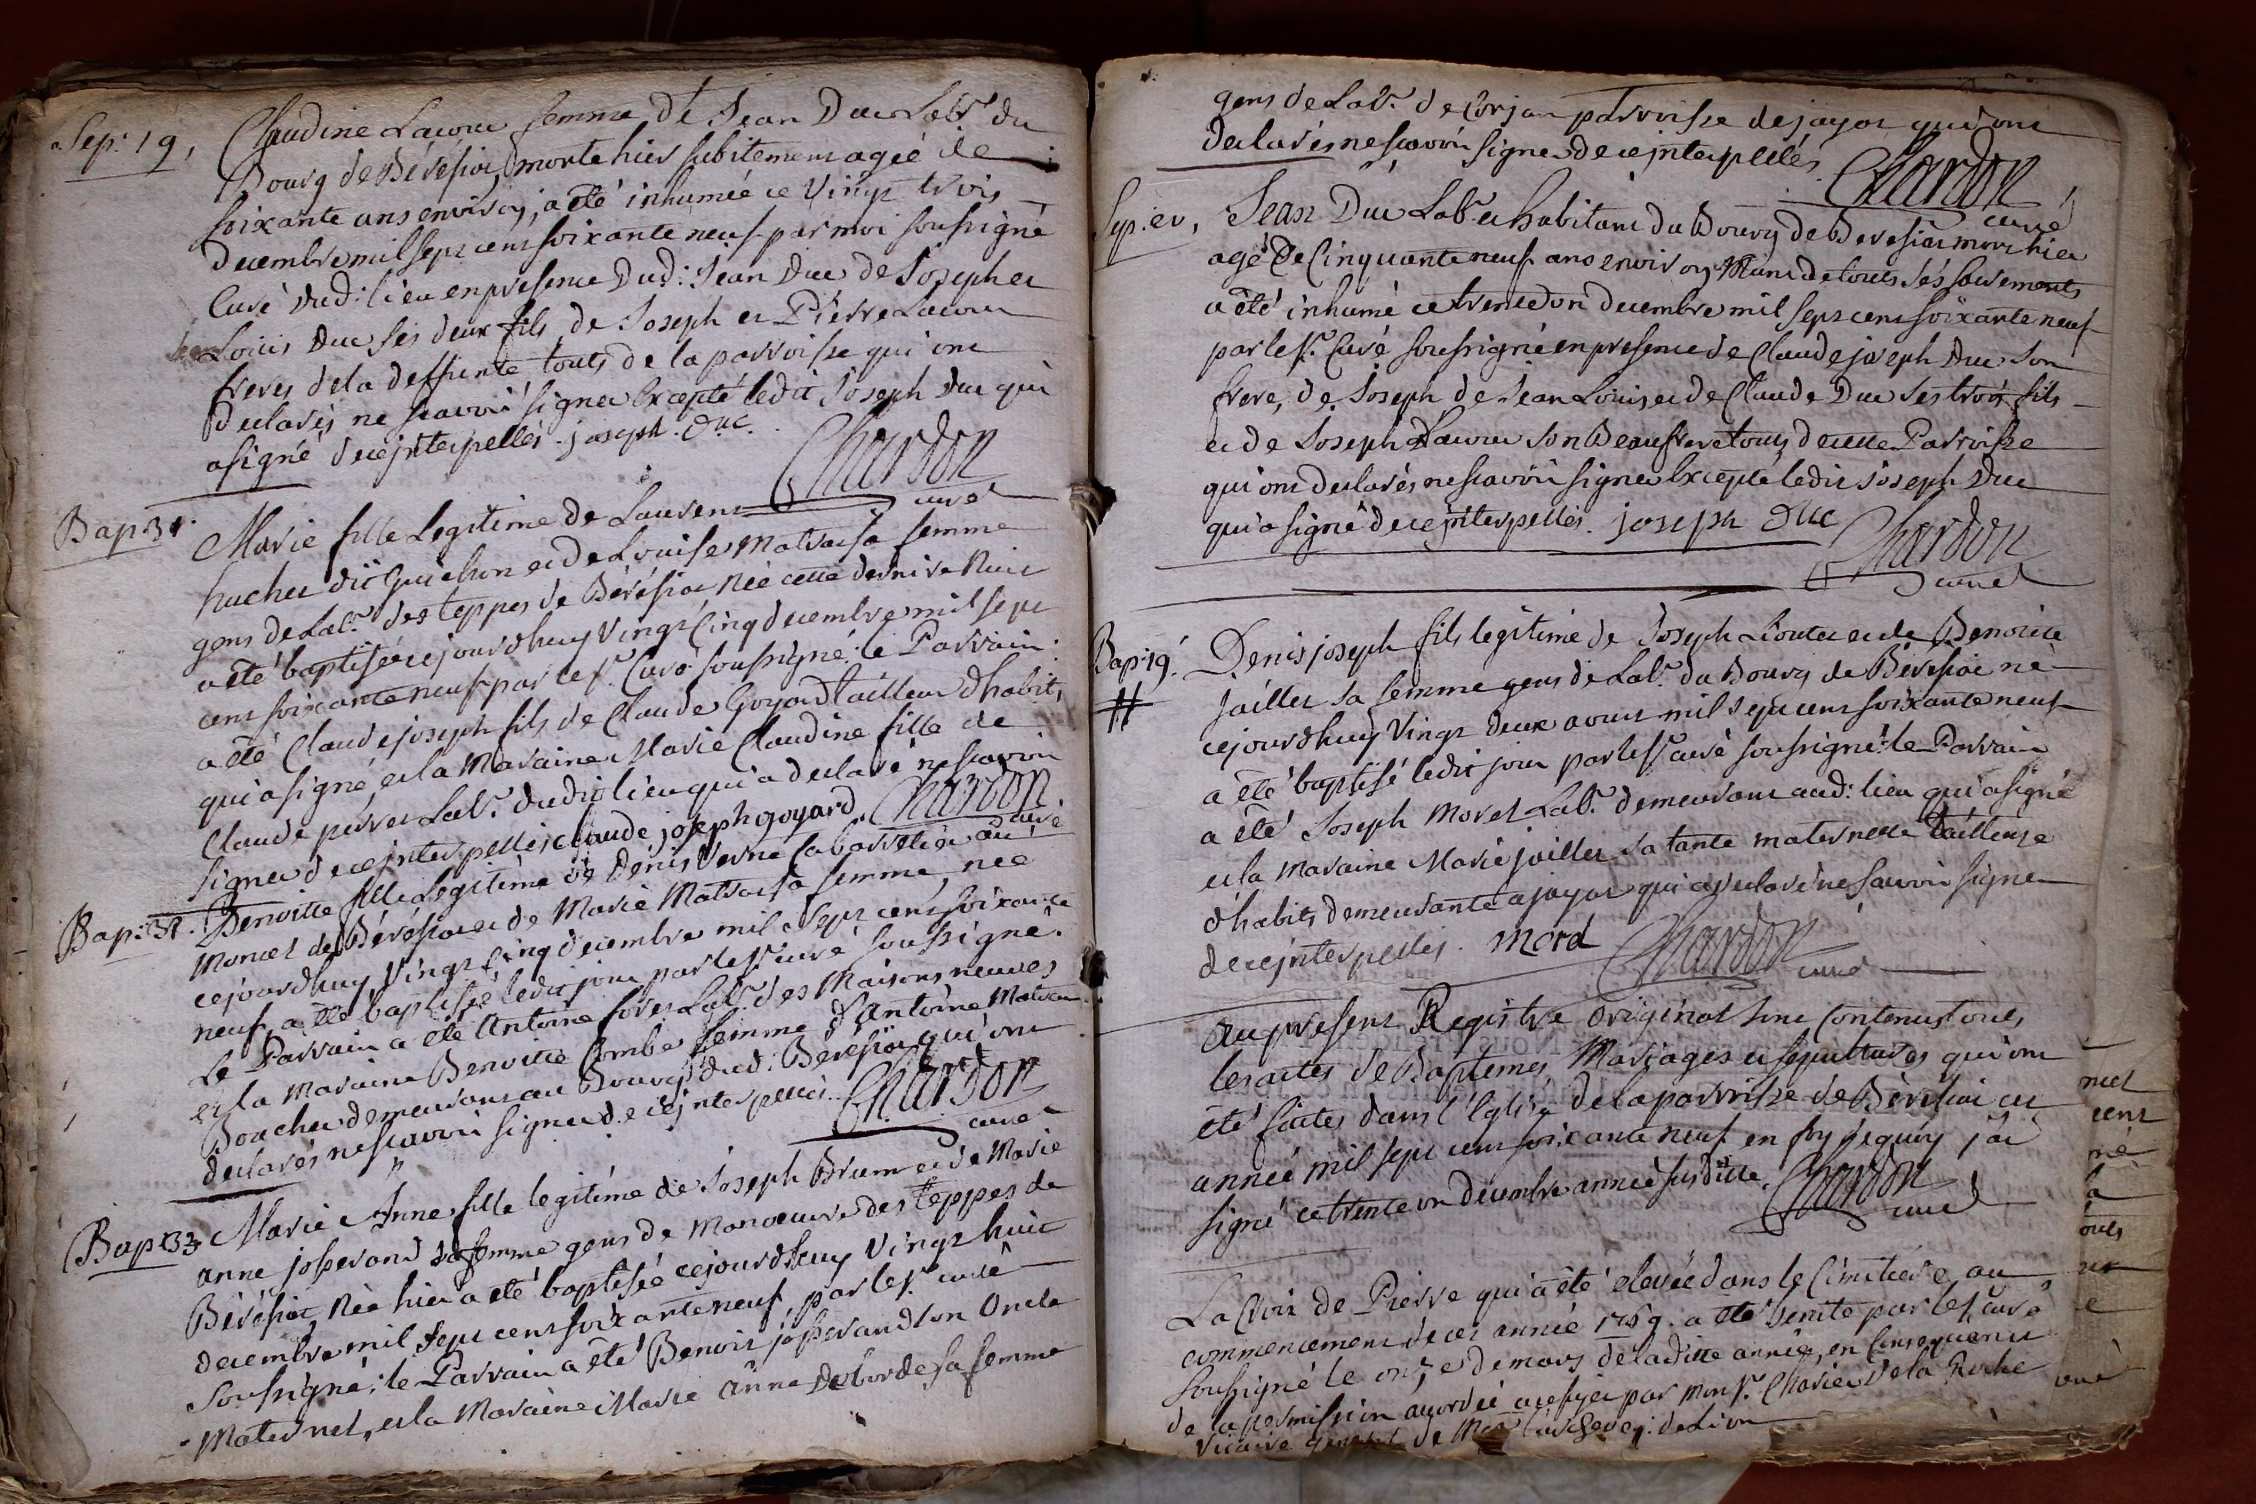 Sep: 19, Claudine Lacour femme de Jean Duc Labr du
Bourg de Béréziat, morte hier subitement agée de
soixante ans environ, a été inhumée ce vingt trois
decembre mil sept cent soixante neuf par moi soussigné
Curé dud: lieu en presence dud: Jean Duc de Joseph et
Louis Duc ses deux fils de Joseph et Pierre Lacour
freres de la deffunte touts de la parroisse qui ont
declarés ne scavoir signer Excepté ledit Joseph Duc qui
a signé de ce jnterpellés. joseph. duc.
Chardon
curé
Bap: 31. Marie fille Legitime de Laurent
huchet dit Guichon et de Louise matra sa femme
gens de Labr des teppes de Béréziat née cette derniere Nuit
a été baptisée cejourdhuy vingt Cinq decembre mil sept
cent soixante neuf par le sr Curé soussigné: le Parrain
a été Claude joseph fils de Claude Goyard tailleur dhabits
qui a signé, et la Maraine Marie Claudine fille de
Claude perret Labr dudit lieu qui a declaré ne scavoir
signer de ce jnterpellés claude joseph goyard. Chardon
curé
Bap: 32. Benoitte fille Legitime de Denis Verne Cabarretier au
Moncel de Béréziat et de Marie Matra sa femme, née
cejourdhuy vingt cinq decembre mil sept cent soixante
neuf, a été baptisée ledit jour par le sr curé soussigné.
Le Parrain a été Antoine foret Labr des Maisons neuves
et la Maraine Benoitte Combe femme d'Antoine Matra
Boucher demeurant au Bourg dud: Béréziat qui ont
declarés ne scavoir signer de ce jnterpellés. Chardon
curé
Bap: 33. Marie Anne fille legitime de Joseph Brun et de Marie
anne josserand sa femme gens de Manoeuvre des teppes de
Béréziat, Née hier a eté baptisée cejourdhuy vingt huit
decembre mil sept cent soixante neuf par le sr curé
soussigné: le Parrain a été Benoit josserand son Oncle
Maternel, et la Maraine Marie anne deborde sa femme
gens de Labr de Corjan parroisse de jayat qui ont
declarés ne scavoir signer de ce jnterpellés Chardon
curé
Sep: 20, Jean Duc Labr et habitant du Bourg de Bereziat mort hier
agé de Cinquante neuf ans environ Muni de touts ses sacrements
a été inhumé ce trente un decembre mil sept cent soixante neuf
par le sr Curé soussigné en presence de Claude joseph Duc son
frere, de Joseph de Jean Louis et de Claude Duc ses trois fils
et de Joseph Lacour son Beaufrere touts de cette Parroisse
qui ont declarés ne scavoir signer Excepté ledit Joseph Duc
qui a signé de ce jnterpellés. joseph duc Chardon
curé
Bap: 19. Denis joseph fils legitime de Joseph Routier et de Benoitte
# jaillet sa femme gens de Labr du Bourg de Béréziat né
cejourdhuy vingt deux aoust mil sept cent soixante neuf
a été baptisé ledit jour par le sr curé soussigné: le Parrain
a été Joseph Morel Labr demeurant aud: lieu qui a signé
et la Maraine Marie jaillet sa tante maternelle tailleuse
d'habits demeurante a jayat qui a declaré ne scavoir signer
de ce jnterpellés. Morel Chardon
curé
Au present Registre original sont contenus touts
les actes de Baptemes, Mariages et sepultures qui ont
été faites dans l'Eglise de la parroisse de Béréziat cet
année mil sept cent soixante neuf en foy de quoy j'ai
signé ce trente un decembre année susditte. Chardon
curé
La Croix de Pierre qui a été elevée dans le Cimetiere au
commencement de cet année 1769. a été benite par le sr curé
soussigné le onze de mars de laditte année, en Consequence
de la permission accordée a ce sujet par Monsr Charier de la Roche
Vicaire general de Mgr l'archeveq: de Lion